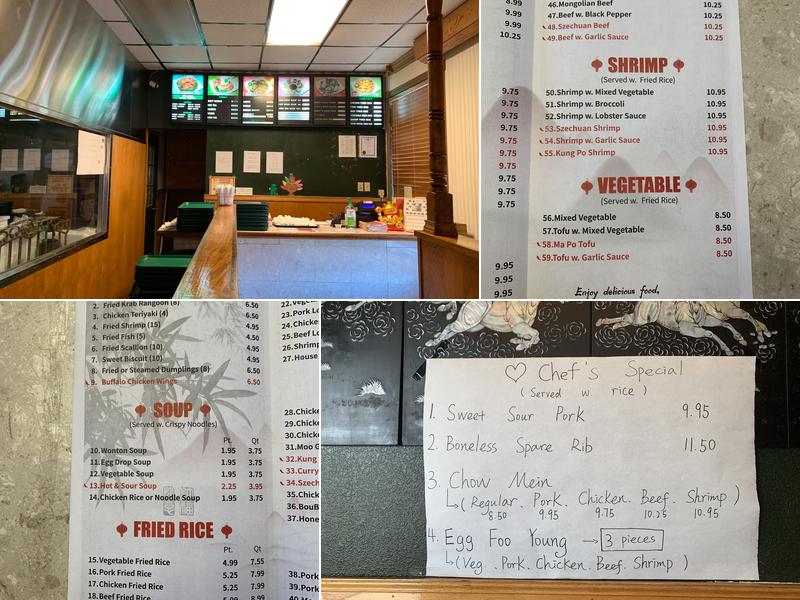 9.99
9.99
10.25
46.Mongolian Beef 10.25
47.Beef w. Black Pepper 10.25
48.Szechuan Beef 10.25
49.Beef w. Garlic Sauce 10.25
SHRIMP
(Served w. Fried Rice)
9.75
9.75
9.75
9.75
9.75
9.75
9.75
9.75
9.75
9.75
50.Shrimp w. Mixed Vegetable 10.95
51.Shrimp w. Broccoli 10.95
52.Shrimp w. Lobster Sauce 10.95
53.Szechuan Shrimp 10.95
54.Shrimp w. Garlic Sauce 10.95
55.Kung Po Shrimp 10.95
VEGETABLE
(Served w. Fried Rice)
56.Mixed Vegetable 8.50
57.Tofu w. Mixed Vegetable 8.50
58.Ma Po Tofu 8.50
59.Tofu w. Garlic Sauce 8.50
9.95
9.95
9.95
Enjoy delicious food,
2. Fried Krab Rangoon (8) 6.50
3. Chicken Teriyaki (4) 6.50
4. Fried Shrimp (15) 4.95
5. Fried Fish (5) 4.50
6. Fried Scallion (10) 4.95
7. Sweet Biscuit (10) 4.95
8. Fried or Steamed Dumplings (8) 6.50
9. Buffalo Chicken Wings 6.50
SOUP
(Served w. Crispy Noodles)
Pt. Qt
10.Wonton Soup 1.95 3.75
11.Egg Drop Soup 1.95 3.75
12.Vegetable Soup 1.95 3.75
13.Hot & Sour Soup 2.25 3.95
14.Chicken Rice or Noodle Soup 1.95 3.75
FRIED RICE
Pt. Qt.
15.Vegetable Fried Rice 4.99 7.55
16.Pork Fried Rice 5.25 7.99
17.Chicken Fried Rice 5.25 7.99
18.Beef Fried Rice 8.99
23.Pork Lo
24.Chick
25.Beef Lo
26.Shrimp
27.House
28.Chicke
29.Chicke
30.Chick
31.Moo G
32.Kung
33.Curry
34.Szech
35.Chick
36.BouB
37.Hone
38.Pork
39.Pork
Chef's Special
(Served w rice)
1. Sweet Sour Pork 9.95
2 Boneless Spare Rib 11.50
3. Chow Mein
(Regular. Pork. Chicken. Beef. Shrimp)
8.50 9.95 9.75 10.25 10.95
4. Egg Foo Young → 3 pieces
(Veg. Pork. Chicken. Beef. Shrimp)